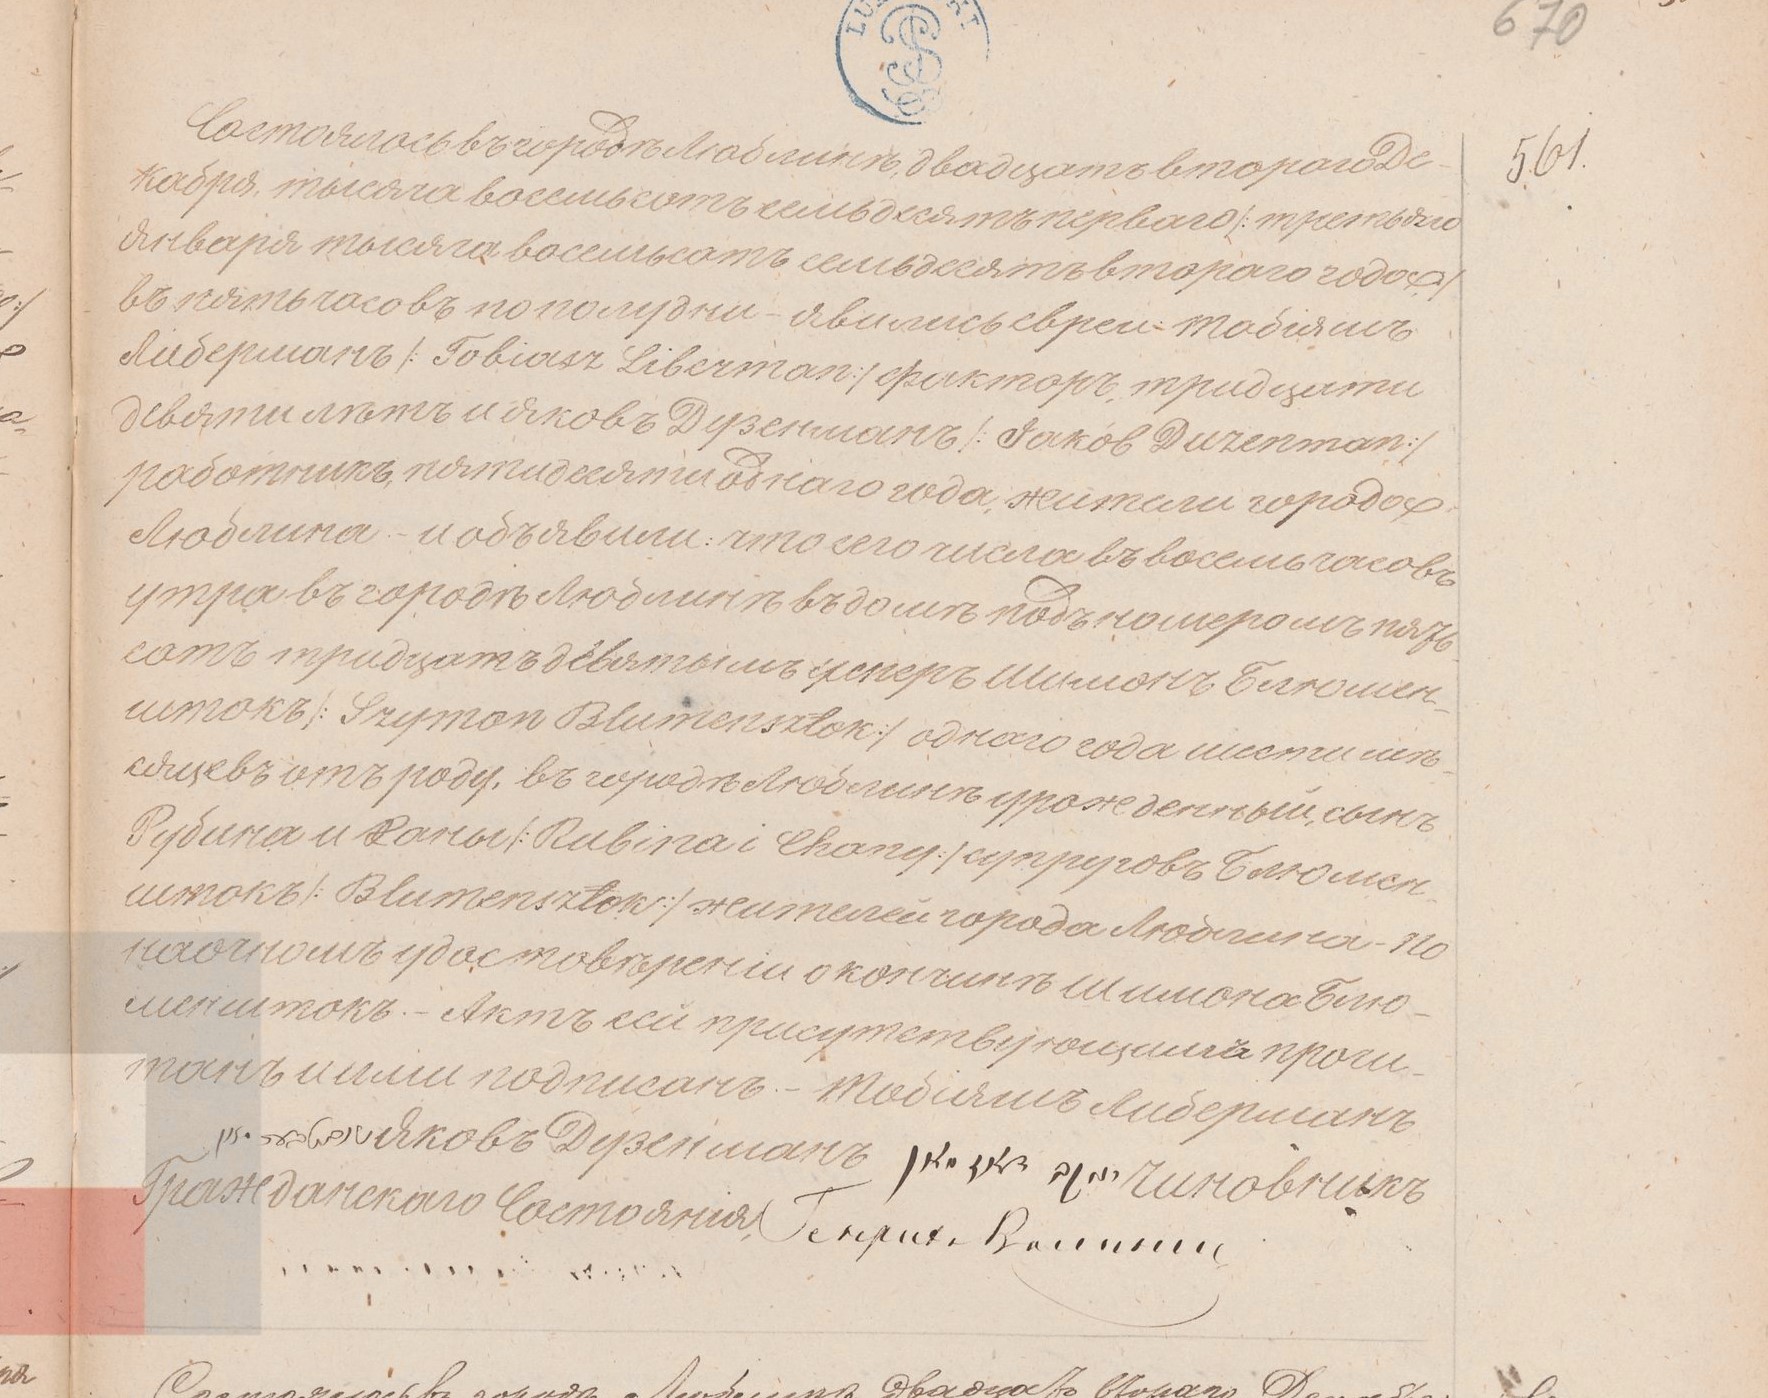 670
561.
Состоялось въ городѣ Люблинѣ, двадцать втораго Де-
кабря, тысяча восемьсотъ семьдесятъ перваго /: третьяго
Января тысяча восемьсотъ семьдесятъ втораго года :/
въ пять часовъ по полудни – явились евреи: Тобіяшъ
Либерманъ /: Tobiasz Liberman :/ факторъ, тридцати
девяти лѣтъ и Яковъ Дузенманъ /: Jakób Duzenman :/
работникъ, пятидесяти одного года, жители города
Люблина – и объявили: что сего числа въ восемь часовъ
утра въ городѣ Люблинѣ въ домѣ подъ номеромъ пять
сотъ тридцать девятымъ умеръ Шимонъ Блюмен-
штокъ /: Szymon Blumensztok :/ одного года шести мѣ-
сяцевъ отъ роду, въ городѣ Люблинѣ урожденный, сынъ
Рубина и Ханы /: Rubina i Chany :/ супруговъ Блюмен-
штокъ /: Blumensztok :/ жителей города Люблина – По
наочномъ удостовѣреніи о кончинѣ Шимона Блю-
менштокъ. – Актъ сей присутствующимъ прочи-
танъ и ими подписанъ. – Тобіяшъ Либерманъ
Яковъ Дузенманъ יעקב Чиновникъ
Гражданскаго Состоянія, Генрихъ